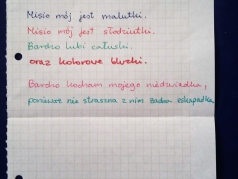 Misio mój jest malutki.
Misio mój jest słodziutki.
Bardzo lubi całuski.
oraz kolorowe bluzki.
Bardzo kocham mojego niedźwiadka,
ponieważ nie straszna z nim żadna eskapadka.